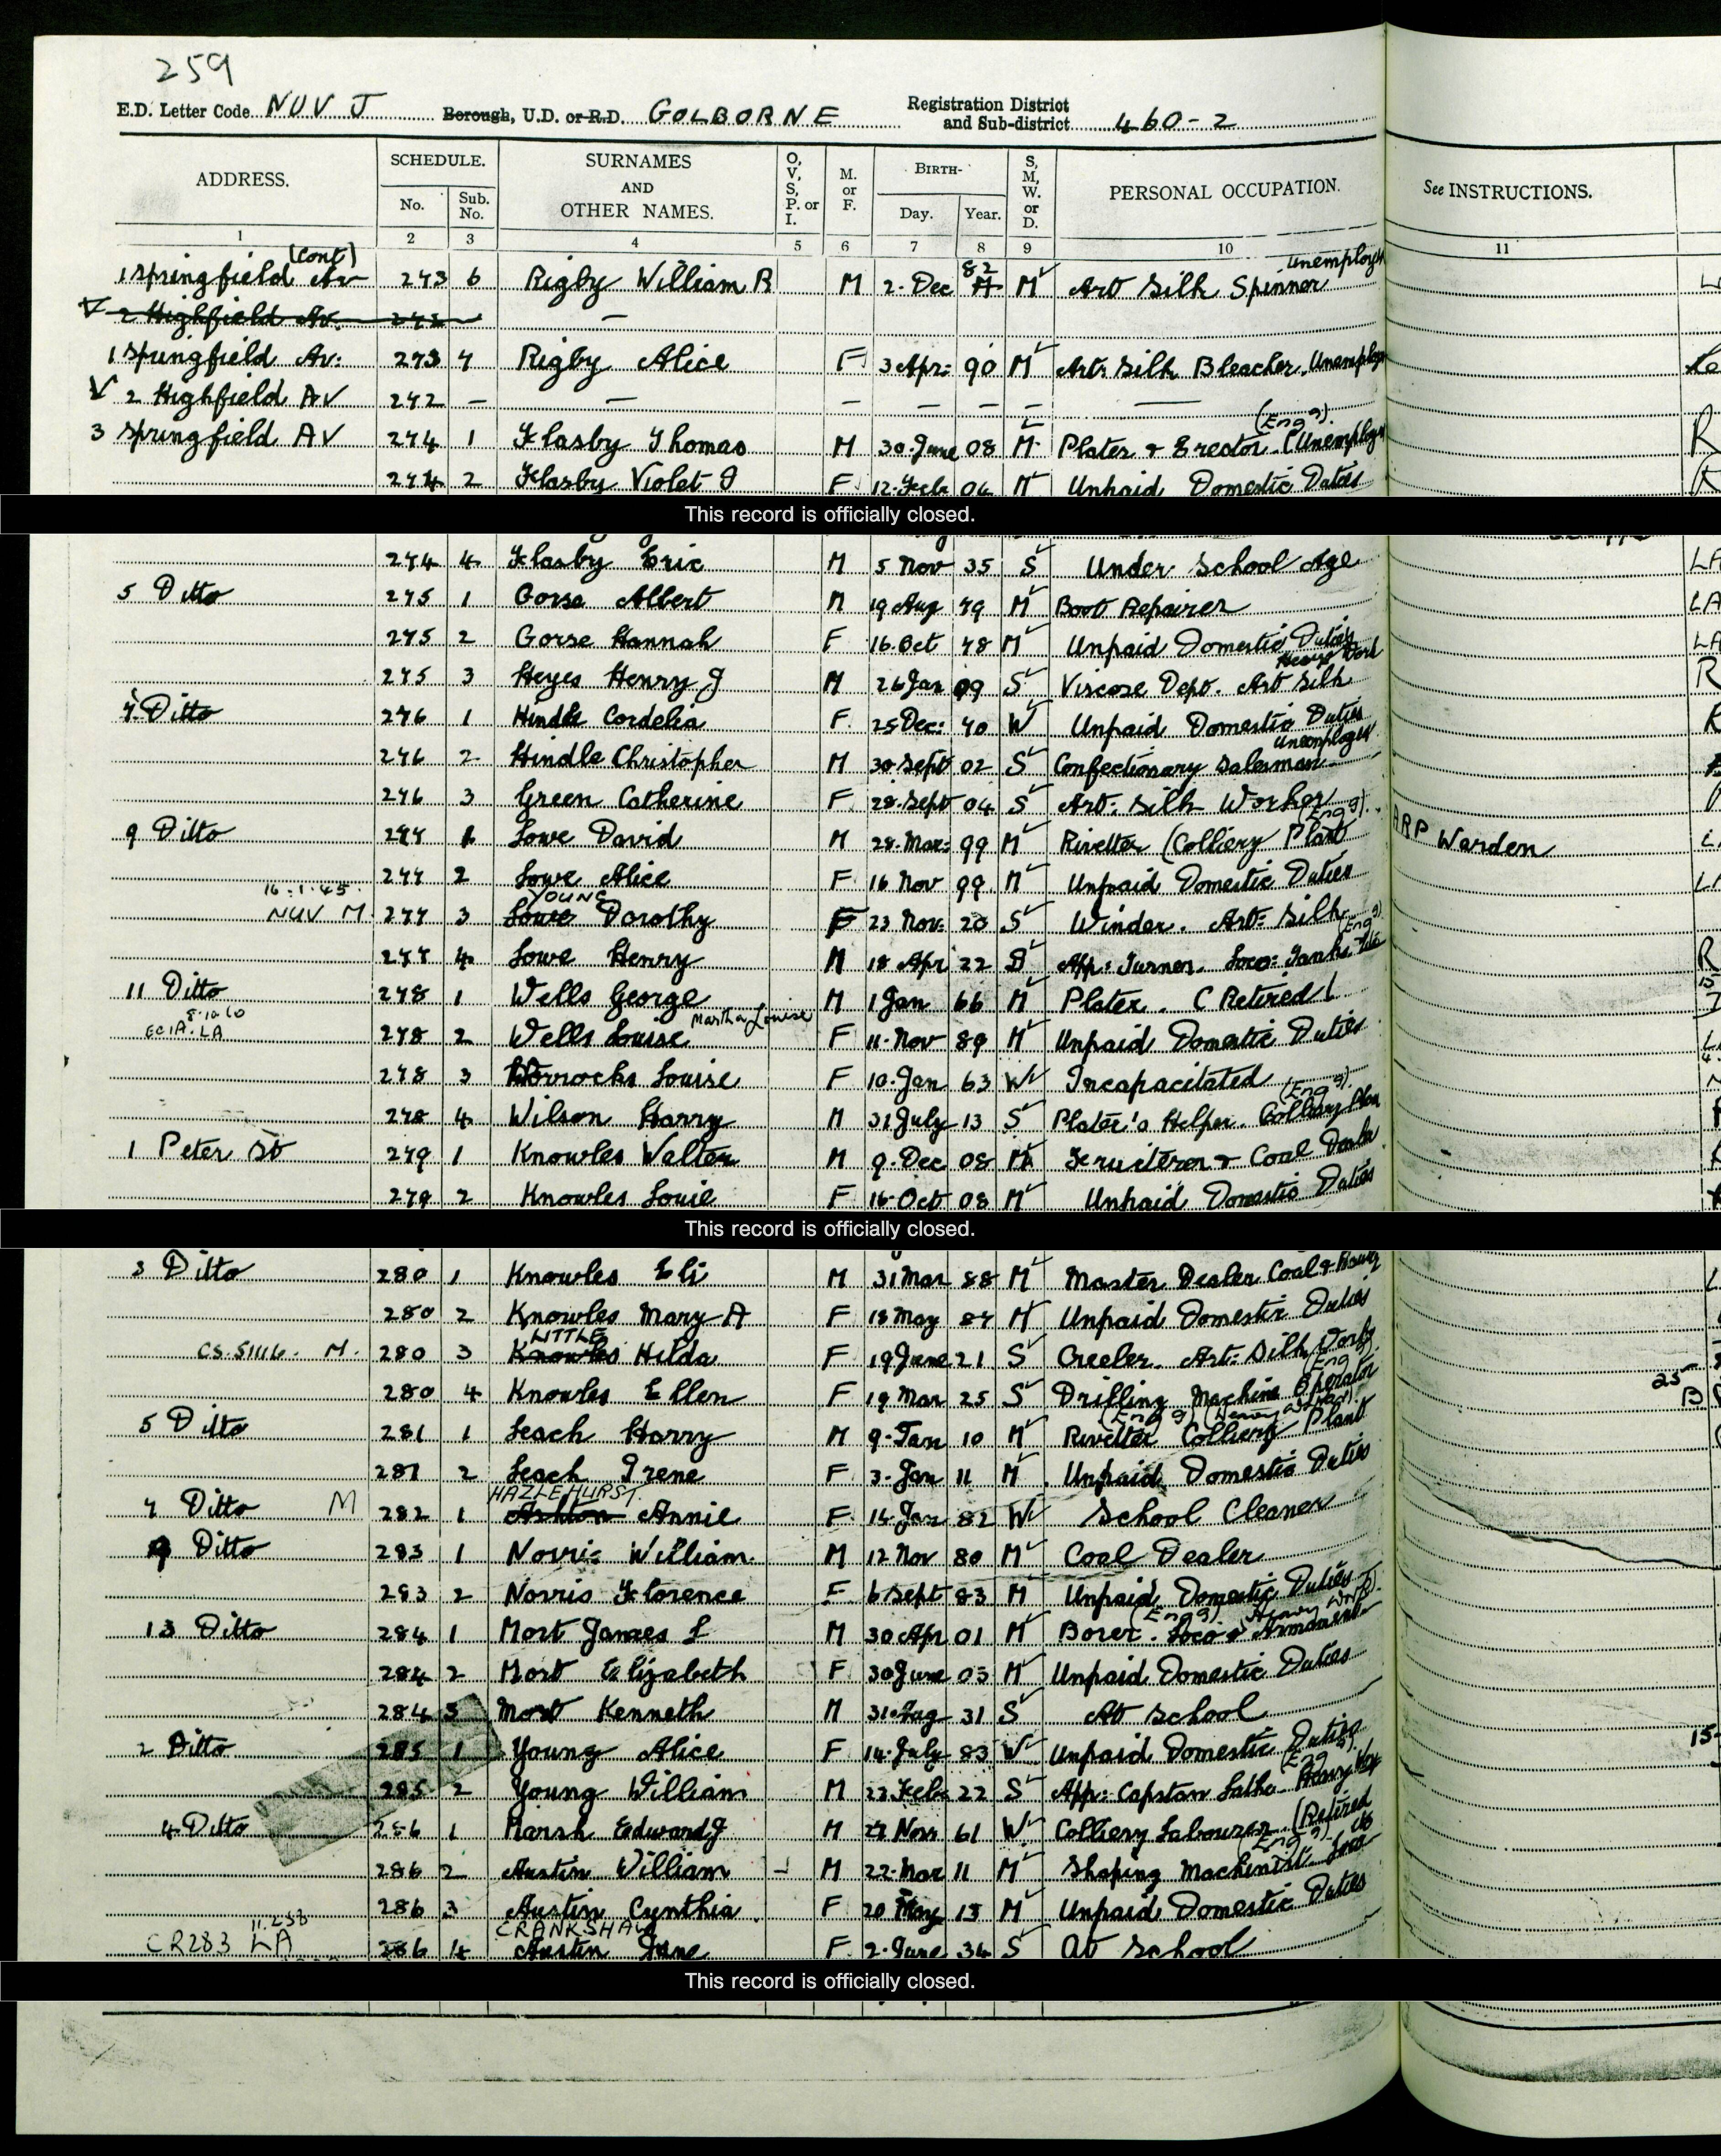 259
E.D. Letter Code NUV J Borough, U.D. or R.D. GOLBORNE Registration District and Sub-district 460-2
ADDRESS. SCHEDULE. SURNAMES AND OTHER NAMES. O, V, S, P. or I. M. or F. BIRTH- S, M, W. or D. PERSONAL OCCUPATION. See INSTRUCTIONS.
No. Sub. No. Day. Year.
1 2 3 4 5 6 7 8 9 10 11
(Cont) 82 Unemploy
1 Springfield Av 273 6 Rigby William R M 2 Dec M Art Silk Spinner
2 Highfield Av. 272 —
1 Springfield Av: 273 7 Rigby Alice F 3 Apr: 90 M Art: Silk Bleacher. Unemploy
V 2 Highfield AV 272 — — — — — — —
(Eng'g).
3 Springfield AV 274 1 Flasby Thomas M 30 June 08 M Plater & Erector (Unemploy R
274 2 Flasby Violet J F 12 Feb 06 M Unpaid Domestic Duties
This record is officially closed.
274 4 Flasby Eric M 5 Nov 35 S Under School Age LA
5 Ditto 275 1 Gorse Albert M 19 Aug 79 M Boot Repairer LA
275 2 Gorse Hannah F 16 Oct 78 M Unpaid Domestic Duties LA
Heavy Work
275 3 Heyes Henry J M 26 Jan 09 S Viscose Dept. Art Silk R
7 Ditto 276 1 Hindle Cordelia F 25 Dec: 70 W Unpaid Domestic Duties
Unemployed
276 2 Hindle Christopher M 30 Sept 02 S Confectionary Salesman
276 3 Green Catherine F 28 Sept 04 S Art: Silk Worker
(Eng'g).
9 Ditto 277 1 Lowe David M 28 Mar: 99 M Rivetter (Colliery Plant ARP Warden
277 2 Lowe Alice F 16 Nov 99 M Unpaid Domestic Duties
16.1.45. YOUNG
NUV M. 277 3 Lowe Dorothy F 23 Nov: 20 S Winder. Art: Silk
(Eng'g)
277 4 Lowe Henry M 18 Apr 22 S App: Turner. Loco: Tanks. R
11 Ditto 278 1 Wells George M 1 Jan 66 M Plater. (Retired)
8.10.60 Martha Louise
ECIA. LA 278 2 Wells Louise F 11 Nov 89 M Unpaid Domestic Duties
278 3 Worrocks Louise F 10 Jan 63 W Incapacitated
(Eng'g).
278 4 Wilson Harry M 31 July 13 S Plater's Helper. Colliery Plan
1 Peter St 279 1 Knowles Walter M 9 Dec 08 M Fruiterer & Coal Deale
279 2 Knowles Louie F 16 Oct 08 M Unpaid Domestic Duties
This record is officially closed.
3 Ditto 280 1 Knowles Eli M 31 Mar 88 M Master Dealer Coal &
280 2 Knowles Mary A F 18 May 87 M Unpaid Domestic Duties
LITTLE
M. 280 3 Knowles Hilda F 19 June 21 S Creeler. Art: Silk Works
(Eng'g)
280 4 Knowles Ellen F 19 Mar 25 S Drilling Machine Operator 25 B
(Eng'g) (Heavy Work).
5 Ditto 281 1 Leach Harry M 9 Jan 10 M Rivetter Colliery Plant
281 2 Leach Irene F 3 Jan 11 M Unpaid Domestic Duties
HAZLEHURST.
7 Ditto M 282 1 Ashton Annie F 14 Jan 82 W School Cleaner
9 Ditto 283 1 Norris William M 12 Nov 80 M Coal Dealer
283 2 Norris Florence F 6 Sept 83 M Unpaid Domestic Duties
(Eng'g) Heavy Work).
13 Ditto 284 1 Mort James L M 30 Apr 01 M Borer. Loco & Armament
284 2 Mort Elizabeth F 30 June 03 M Unpaid Domestic Duties
284 3 Mort Kenneth M 31 Aug 31 S At School
2 Ditto 285 1 Young Alice F 14 July 83 W Unpaid Domestic Duties 15-
(Eng'g).
285 2 Young William M 22 Feb 22 S App: Capstan Lathe Heavy
4 Ditto 286 1 Marsh Edward J M 27 Nov 61 W Colliery Labourer (Retired
Eng'g)
286 2 Austin William M 22 Mar 11 M Shaping Machinist. Loco
286 3 Austin Cynthia F 20 May 13 M Unpaid Domestic Duties
CRANKSHAW
CR283 LA 286 4 Austin June F 2 June 34 S At School
This record is officially closed.